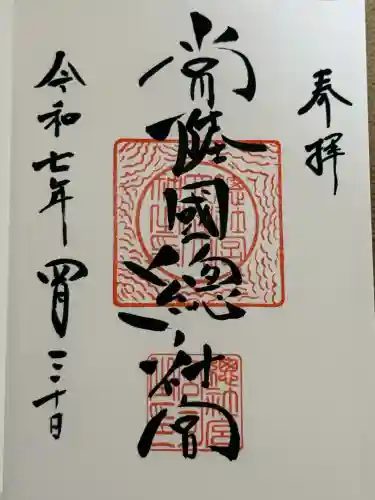 奉拝
常陸國總社宮
令和七年四月三十日